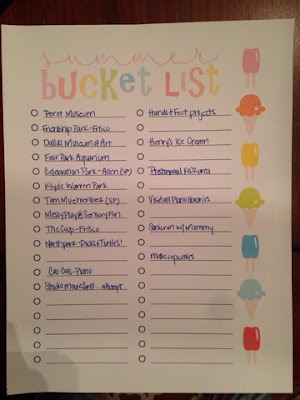 summer
BUCKET LIST
Perot Museum
Friendship Park-Frisco
Dallas Museum of Art
Fair Park Aquarium
Celebration Park - Allen (SP)
Klyde Warren Park
Tom Muehlenbeck (SP)
Messy Play @ Sensory Fun
The Coop-Frisco
Northpark-Ducks & Turtles!
Cou Cou-Plano
Studio Movie Grill
Hands & Feet projects
Henry's Ice Cream
Kidzarea
Visit all Plano libraries
w/ Mommy
Make cupcakes